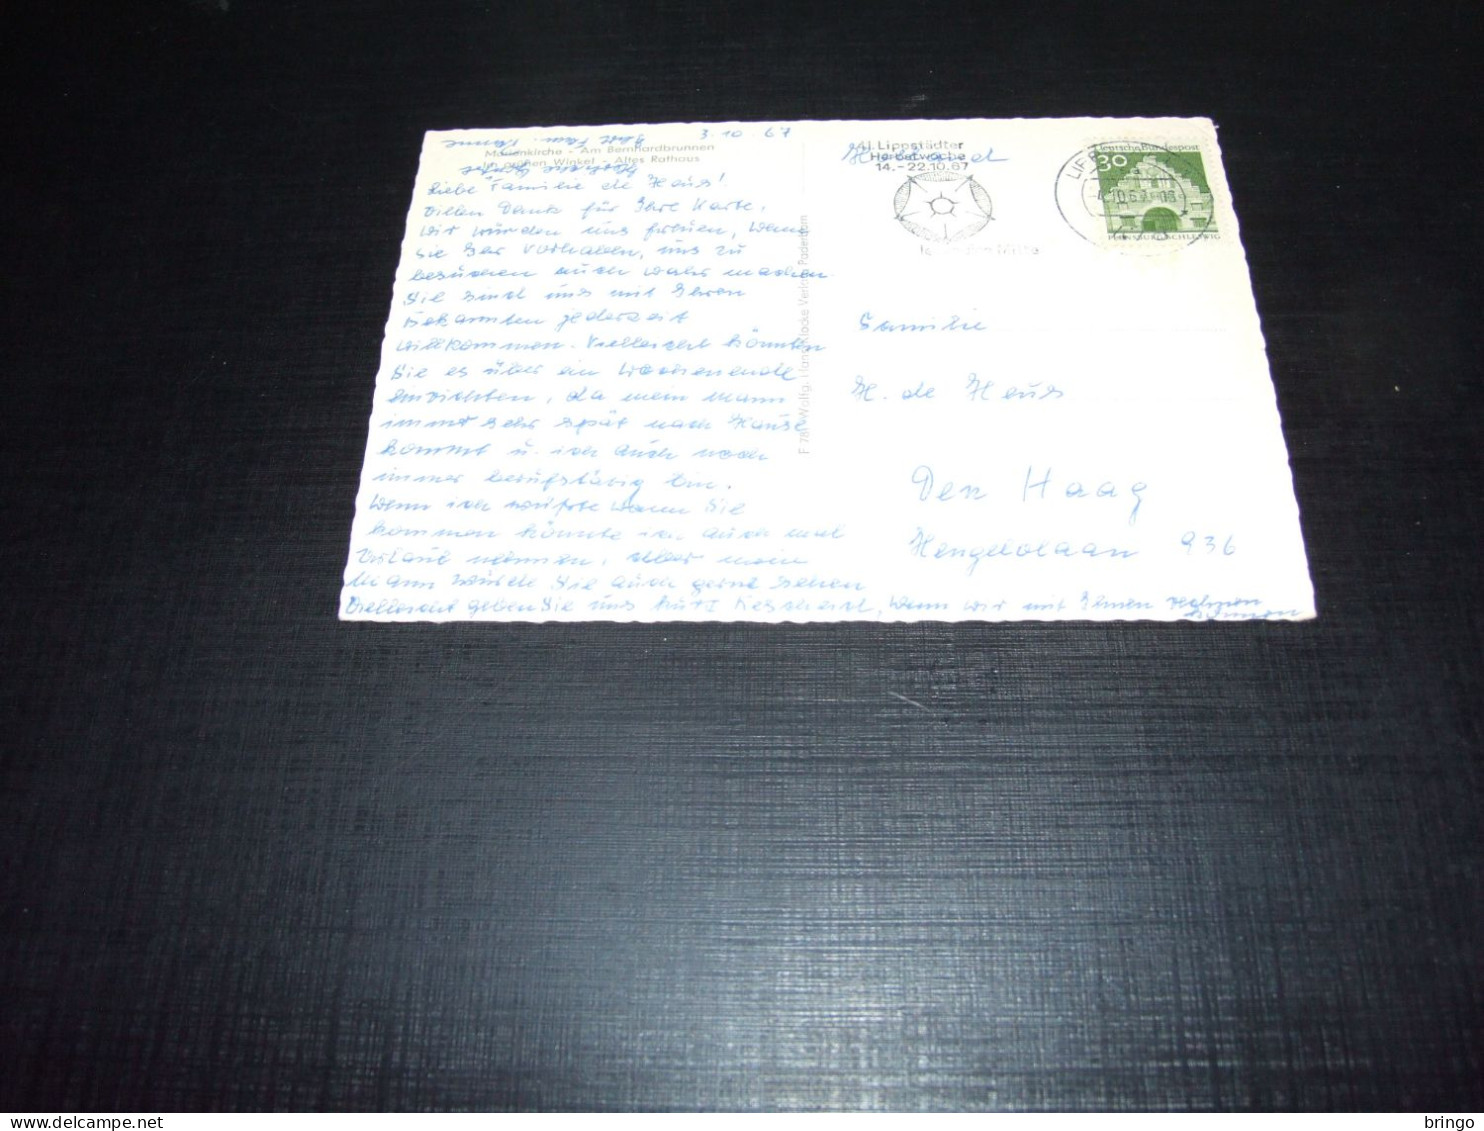 3.10.67
Marienkirche - Am Bernhardbrunnen
Im grünen Winkel - Altes Rathaus
Liebe Familie de Heus!
Villen Dank für Ihre Karte.
Wir würden uns freuen, wenn
Sie Ihr Vorhaben, uns zu
besuchen auch wahr machen.
Sie sind uns mit Ihren
Bekannten jederzeit
willkommen. Vielleicht könnten
Sie es über ein Wochenende
einrichten, da mein Mann
immer sehr spät nach Hause
kommt u. ich auch noch
immer berufstätig bin.
Wenn ich wüsste wann Sie
kommen könnte ich auch mal
Urlaub nehmen, aber mein
Mann würde Sie auch gerne sehen
Vielleicht geben Sie uns kurz Bescheid, wenn wir mit Ihnen rechnen
können
Herzliche Grüße
Ihre Fam.
F 78 Wolfg. Hans Klocke Verlag Paderborn
41. Lippstädter
Herbstwoche
14.-22.10.67
Holland
Deutsche Bundespost
30
FLENSBURG/SCHLESWIG
-4.10.67
Familie
H. de Heus
Den Haag
Hengelolaan 936
bringo